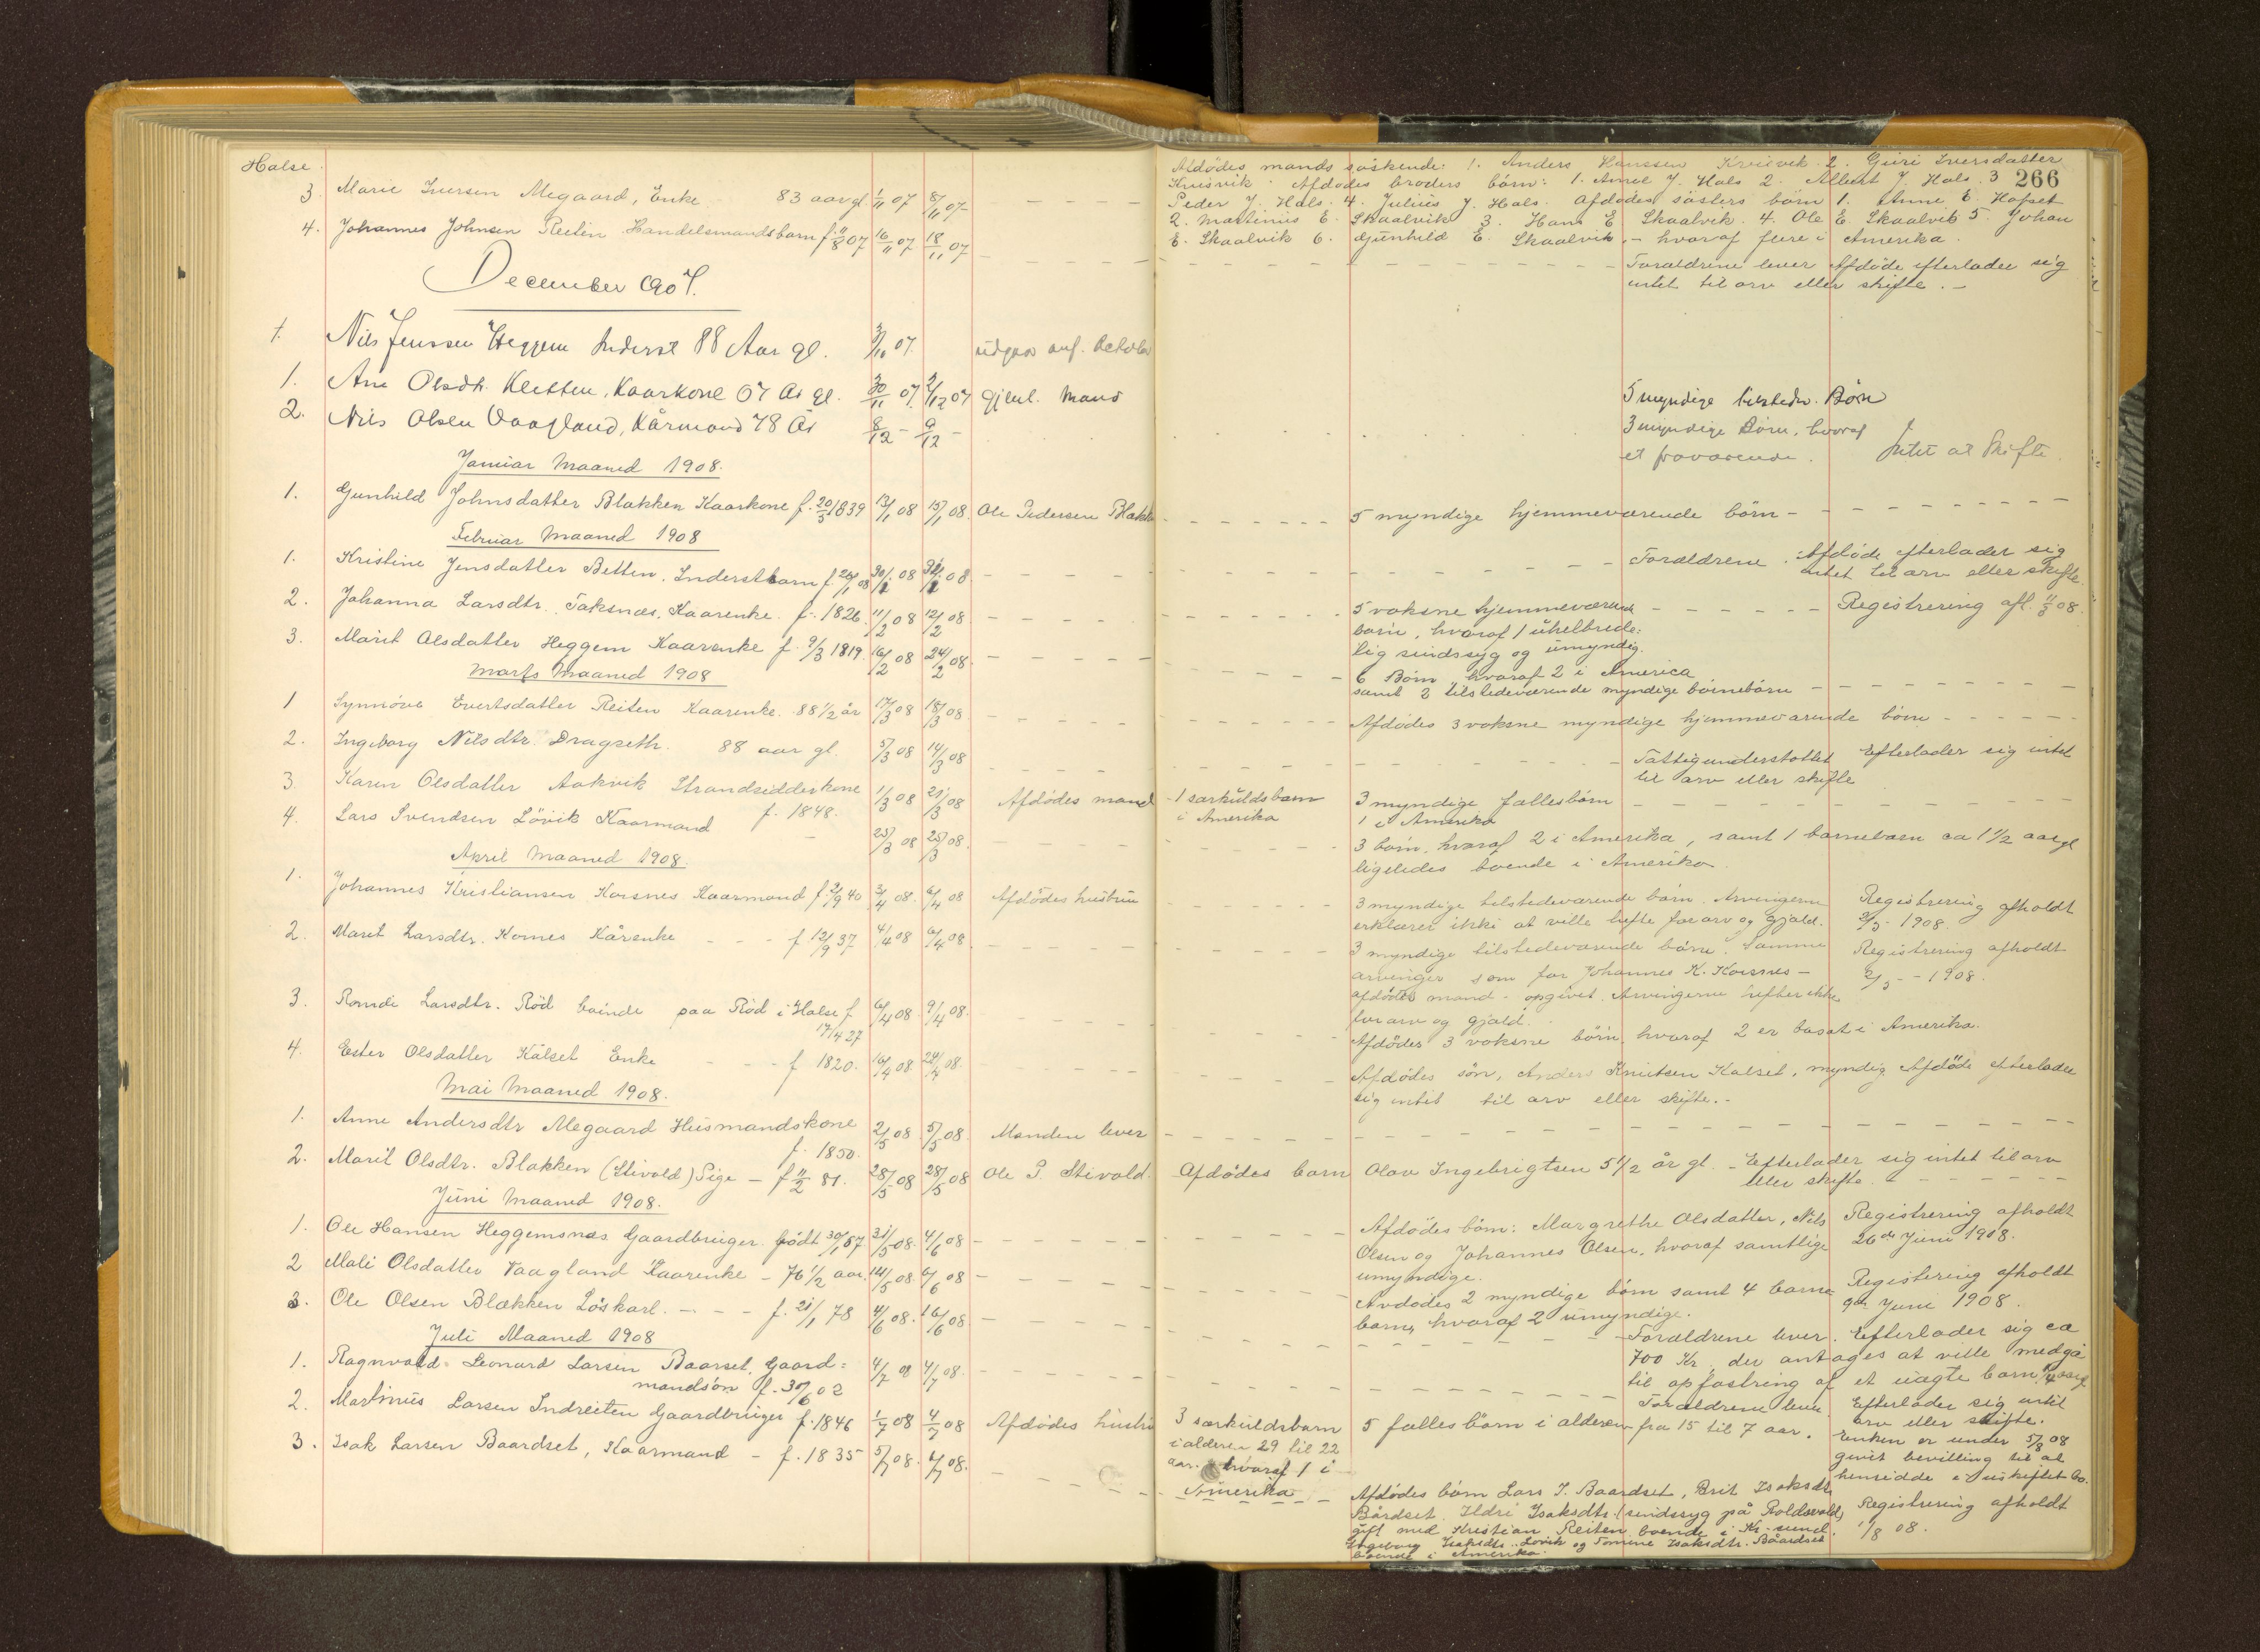 Halse.
3. Marie Iversen Megaard, Enke 83 aar gl. 1/11 07 8/11 07 - - - -
4. Johannes Johnsen Reiten Handelsmandsbarn f. 11/8 07 16/11 07 18/11 07 - - - -
December 1907.
1. Nils Jenssen Heggem Inderst 88 Aar gl. 3/10 07. udgaar anf. October
1. Ane Olsdtr. Kletten, Kaarkone 67 År gl. 30/11 07. 2/12 07 Gjenl. Mand
2. Nils Olsen Vaagland, Kårmand 78 År 8/12 - 9/12 -
Januar Maaned 1908.
1. Gunhild Johnsdatter Blakken Kaarkone f. 20/3 1839 13/1 08 15/1 08. Ole Pedersen Blakk
Februar Maaned 1908
1. Kristine Jensdatter Betten. Inderstbarn f. 26/1 08 30/1 08 31/1 08 - - - -
2. Johanna Larsdtr. Taksnæs, Kaarenke. f. 1826. 11/2 08 12/2 08. - - - -
3. Marit Olsdatter Heggem Kaarenke f. 9/3 1819. 16/2 08 24/2 08. - - - -
Marts Maaned 1908
1 Synnöve Evertsdatter Reiten Kaarenke. 88 1/2 år 17/3 08 18/3 08. - - - -
2. Ingeborg Nilsdtr. Dragseth. 88 aar gl. 5/3 08 14/3 08 - - - -
3. Karen Olsdatter Aakvik Strandsidderkone f. 1848. 1/3 08 21/3 08 Afdödes mand
4. Lars Svendsen Lövik Kaarmand - 23/3 08 25/3 08. - - - -
April Maaned 1908.
1. Johannes Kristiansen Korsnes Kaarmand f. 2/9 40 3/4 08. 6/4 08 Afdödes hustru
2. Marit Larsdtr. Kornes Kårenke - - - f 12/9 37 4/4 08 6/4 08. - - - -
3. Romdi Larsdtr. Röd boende paa Röd i Halse f 17/4 27 6/4 08. 9/4 08. - - - -
4. Ester Olsdatter Kålset Enke - - - f 1820. 16/4 08. 24/4 08. - - - -
Mai Maaned 1908.
1. Anne Andersdtr Megaard Husmandskone f. 1850. 2/5 08. 5/5 08. Manden lever
2. Marit Olsdtr. Blakken (Stivold) Pige - f 11/2 81. 28/5 08 28/5 08 Ole P. Stivold.
Juni Maaned 1908.
1. Ole Hansen Heggemsnes Gaardbruger. födt 30/1 57. 31/5 08. 4/6 08 - - - -
2 Mali Olsdatter Vaagland Kaarenke - 76 1/2 aar. 14/5 08. 6/6 08 - - - -
3. Ole Olsen Blækken Löskarl. - - - f. 21/1 78 4/6 08. 16/6 08 - - - -
Juli Maaned 1908
1. Ragnvald Leonard Larsen Baarset, Gaard=
mandsön f. 30/6 02 4/7 08 4/7 08. - - - -
2. Martinus Larsen Indreiten Gaardbruger f. 1846 1/7 08 4/7 08 Afdödes hustru
3. Isak Larsen Baardset, Kaarmand - f. 1835 5/7 08. 6/7 08. - - - -
Afdödes mands söskende: 1. Anders Hanssen 2. Guri Iversdatter
Krusvik. Afdödes broders börn: 1. Arnol J. Hals 2. Albert J. Hals 3 266
Peder J. Hals. 4. Julius J. Hals. Afdödes sösters börn 1. Anne E. Hafset
2. Martinus E. Skaalvik 3. Hans E Skaalvik. 4. Ole E. Skaalvik 5 Johan
E. Skaalvik 6. Gunhild E. Skaalvik. - hvoraf flere i Amerika.
Forældrene lever Afdöde efterlader sig
intet til arv eller skifte. -
5 myndige tilstedv. Börn
3 myndige Börn, hvoraf
et fraværende. Intet at skifte
5 myndige hjemmeværende börn - - - -
Forældrene. Afdöde efterlader sig
intet til arv eller skifte.
5 voksne hjemmeværende - - - - Registrering afh. 11/3 08.
barn, hvoraf 1 uhelbrede=
lig sindssyg og umyndig.
6 Börn hvoraf 2 i America
samt 2 tilstedeværende myndige börnebörn - - - -
Afdödes 3 voksne myndige hjemmeværende börn - - - -
Fattigunderstöttet Efterlader sig intet
til arv eller skifte
1 særkuldsbarn 3 myndige fællesbörn - - - -
i Amerika 1 i Amerika
3 börn, hvoraf 2 i Amerika, samt 1 barnebarn ca 1 1/2 aar gl
ligeledes boende i Amerika.
3 myndige tilstedeværende börn. Arvingerne Registrering afholdt
erklærer ikke at ville hefte for arv og gjæld. 2/5 - 1908.
3 myndige tilstedeværende börn. Samme Registrering afholdt
arvinger som for Johannes K. Korsnes - 2/5 - - 1908.
afdödes mand - opgivet. Arvingerne hefter ikke
for arv og gjæld.
Afdödes 3 voksne börn, hvoraf 2 er bosat i Amerika.
Afdödes sön, Anders Knutsen Kalset, myndig. Afdöde efterlader
sig intet til arv eller skifte. -
Afdödes barn Olav Ingebrigtsen 5 1/2 år gl. - Efterlader sig intet til arv
eller skifte. - - - -
Afdödes börn: Margrethe Olsdatter, Nils Registrering afholdt
Olsen og Johannes Olsen, hvoraf samtlige 26de Juni 1908.
umyndige.
Avdödes 2 myndige börn samt 4 barne= Registrering afholdt
barn, hvoraf 2 umyndige. 9de Juni 1908.
Forældrene lever. Efterlader sig ca
700 Kr., der antages at ville medgå
til opfostring af et uægte barn
Forældrene lever Efterlader sig intet
arv eller skifte.
3 særkuldsbarn 5 fællesbörn i alderen fra 15 til 7 aar. Enken er under 5/8 08
i alderen 29 til 22 givet bevilling til at
aar. hvoraf 1 i hensidde i uskiftet bo.
Amerika
Afdödes börn Lars I. Baardset, Brit Isaksdtr
Bårdset. Ildri Isaksdtr. (sindssyg på Roldsvold) Registrering afholdt
gift med Kristian Reiten boende i Kr.sund. 1/8 08.
Ingeborg Isaksdtr. Lövik og Tomine Isaksdtr. Baardset
boende i Amerika.